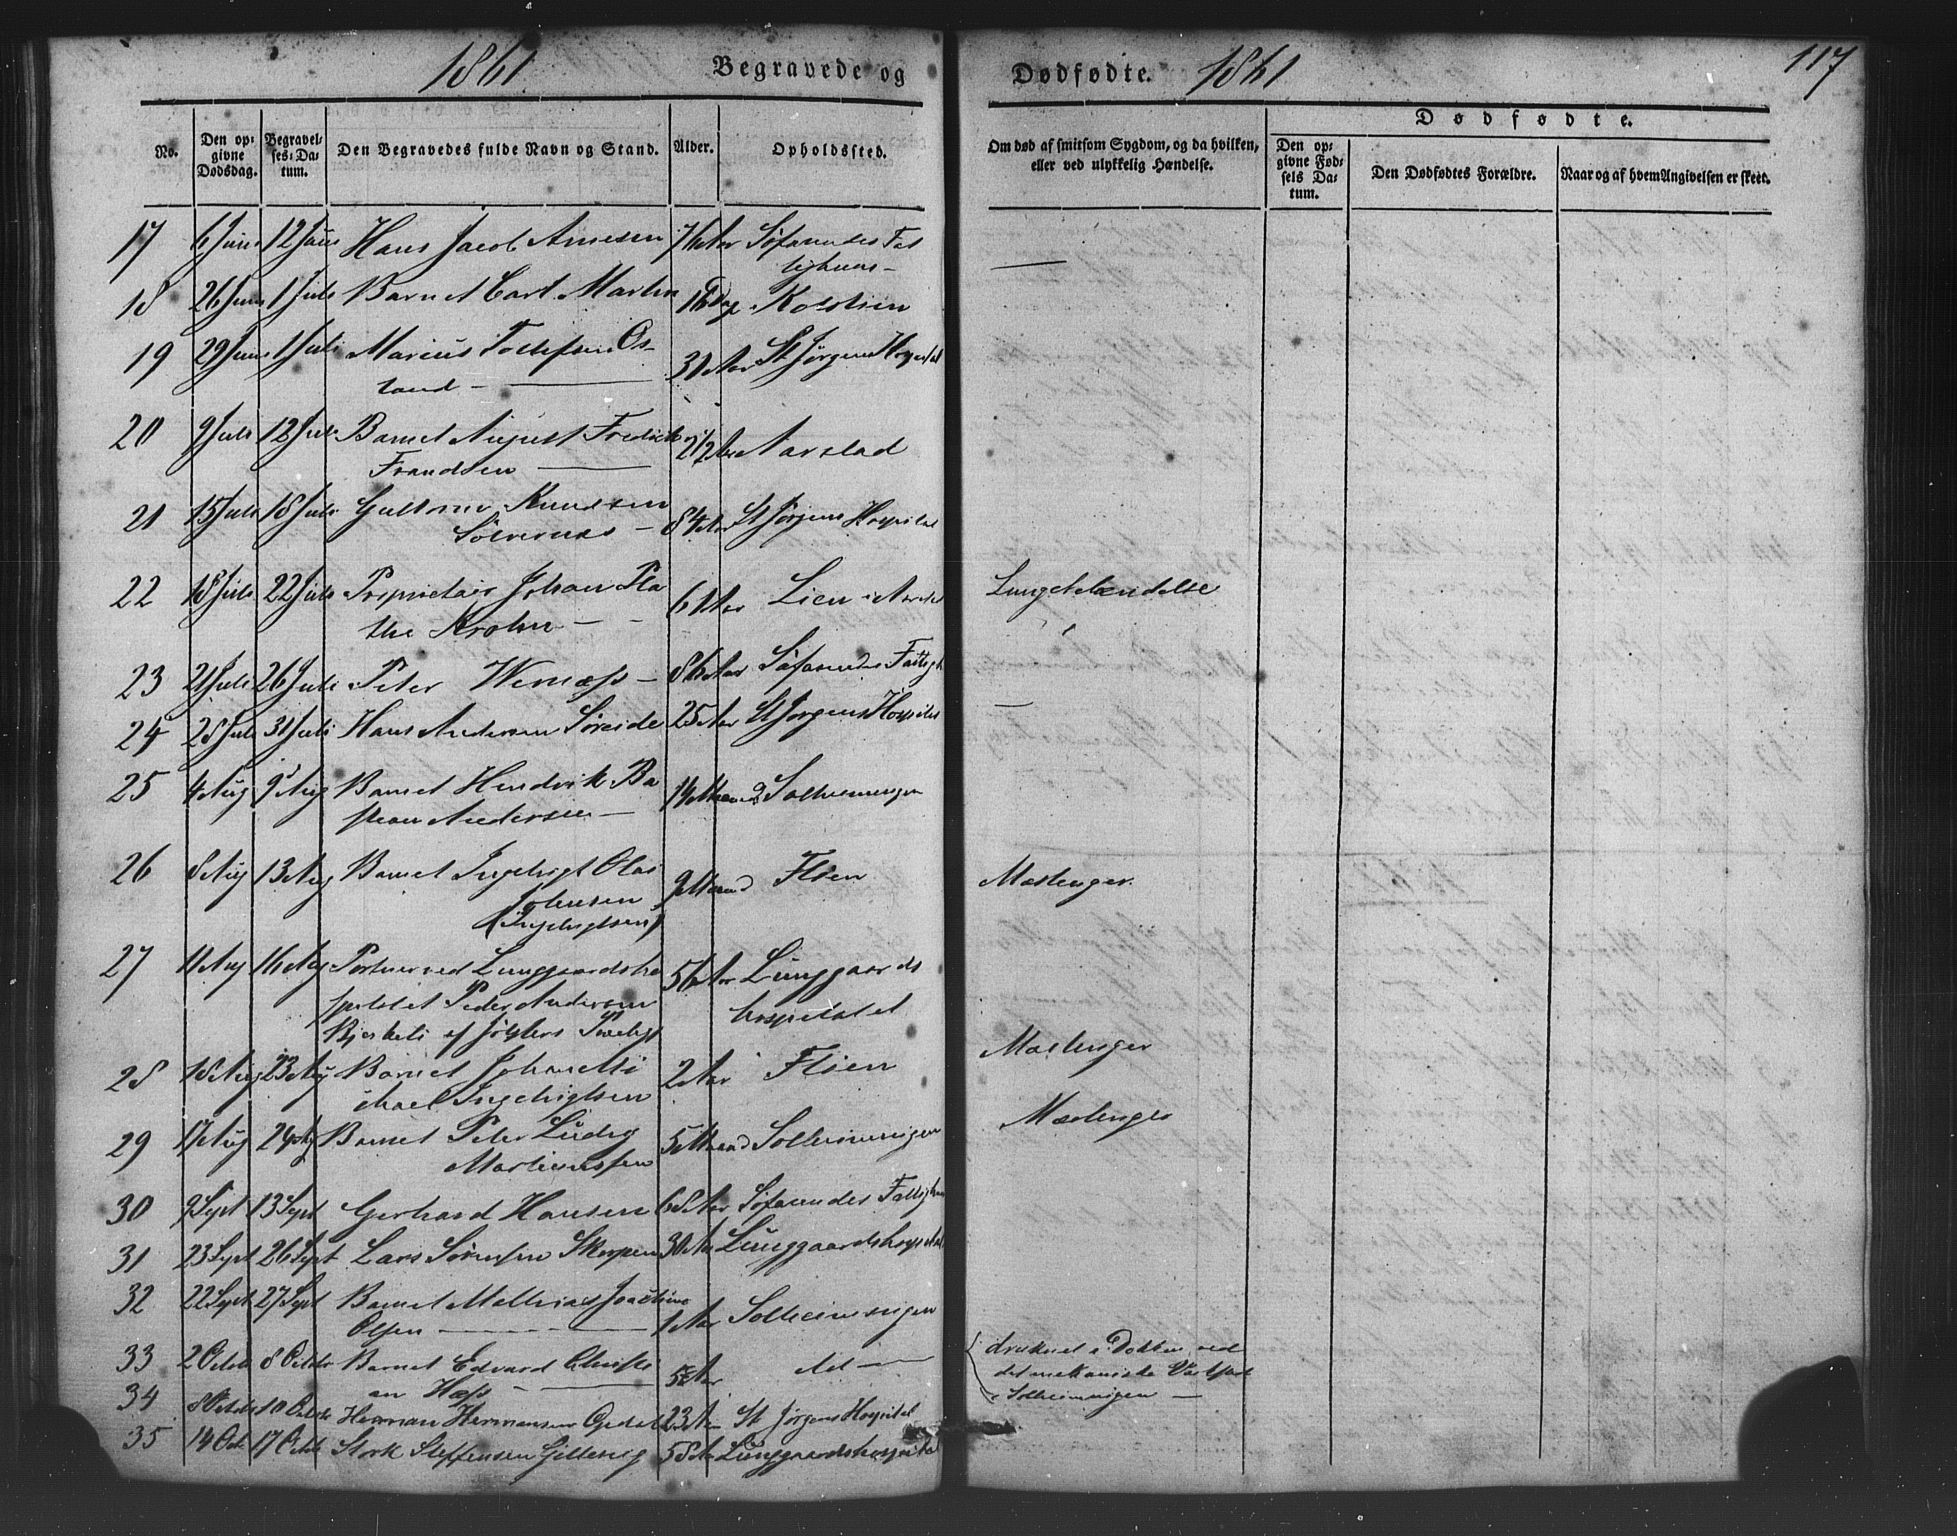 1861 Begravede og Dødfødte. 1861 117
Dødfødte.
No. Den opgivne Dødsdag. Begravelses-Datum. Den Begravedes fulde Navn og Stand. Alder. Opholdssted. Om død af smitsom Sygdom, og da hvilken, eller ved ulykkelig Hændelse. Den opgivne Fødsels Datum. Den Dødfødtes Forældre. Naar og af hvem Angivelsen er skeet.
17 6 Juni 12 Juni Hans Jacob Arnesen 76 Aar Søfarendes Fat
tighuus –
18 26 Juni 1 Juli Barnet Carl Martin 16 Dag
19 29 Juni 1 Juli Marius Tollefsen Os-
land – 31 Aar St Jørgens Hospital
20 9 Juli 12 Juli Barnet August Fredrik
Frandsen – 2 1/2 Aar Aarstad
21 15 Juli 18 Juli Guttorm Knudsen
84 Aar St Jørgens Hospital
22 18 Juli 22 Juli Proprietair Johan Pla
the Krohn – 61 Aar Lien i Aarstad Lungebetændelse
23 21 Juli 26 Juli Peter Wernæss – 86 Aar Søfarendes Fattigh
24 28 Juli 31 Juli Hans Andersen Søreide 25 Aar St Jørgens Hospital
25 4 Aug 9 Aug Barnet Hendrik Ba
stian Andersen – 14 Maaned Solheimsvigen
26 8 Aug 13 Aug Barnet Ingebrigt Olai
Johnsen
(Ingebrigtsen) 9 Maaned Fløen Mæslinger.
27 11 Aug 16 Aug Portner ved Lunggaardsho
spitalet Peder Andersen
Bjerkeli af Jølsters Præstegj 56 Aar Lunggaards
hospitalet
28 18 Aug 23 Aug Barnet Johan Mi
chael Ingebrigtsen 2 Aar Fløen Mæslinger
29 17 Aug 24 Aug Barnet Peter Ludvig
Martinussen 5 Maaned Solheimsvigen Mæslinger
30 9 Sept 13 Sept Gerhard Hansen 68 Aar Søfarendes Fattighuus
31 23 Sept 26 Sept Lars Sørensen Skorpen 30 Aar Lunggaardshospital
32 22 Sept 27 Sept Barnet Mathias Joachim
Olsen – 1 Aar Solheimsvigen
33 2 Octbr 8 Octbr Barnet Edvard Christi
an Hæss – 5 Aar do – druknet i Dokken ved
det mekaniske Værksted
i Solheimsvigen –
34 8 Octbr 10 Octbr Herman Hermansen 23 Aar St Jørgens Hospital
35 14 Oct 17 Octbr Stork Steffensen 58 Aar Lunggaardshospital